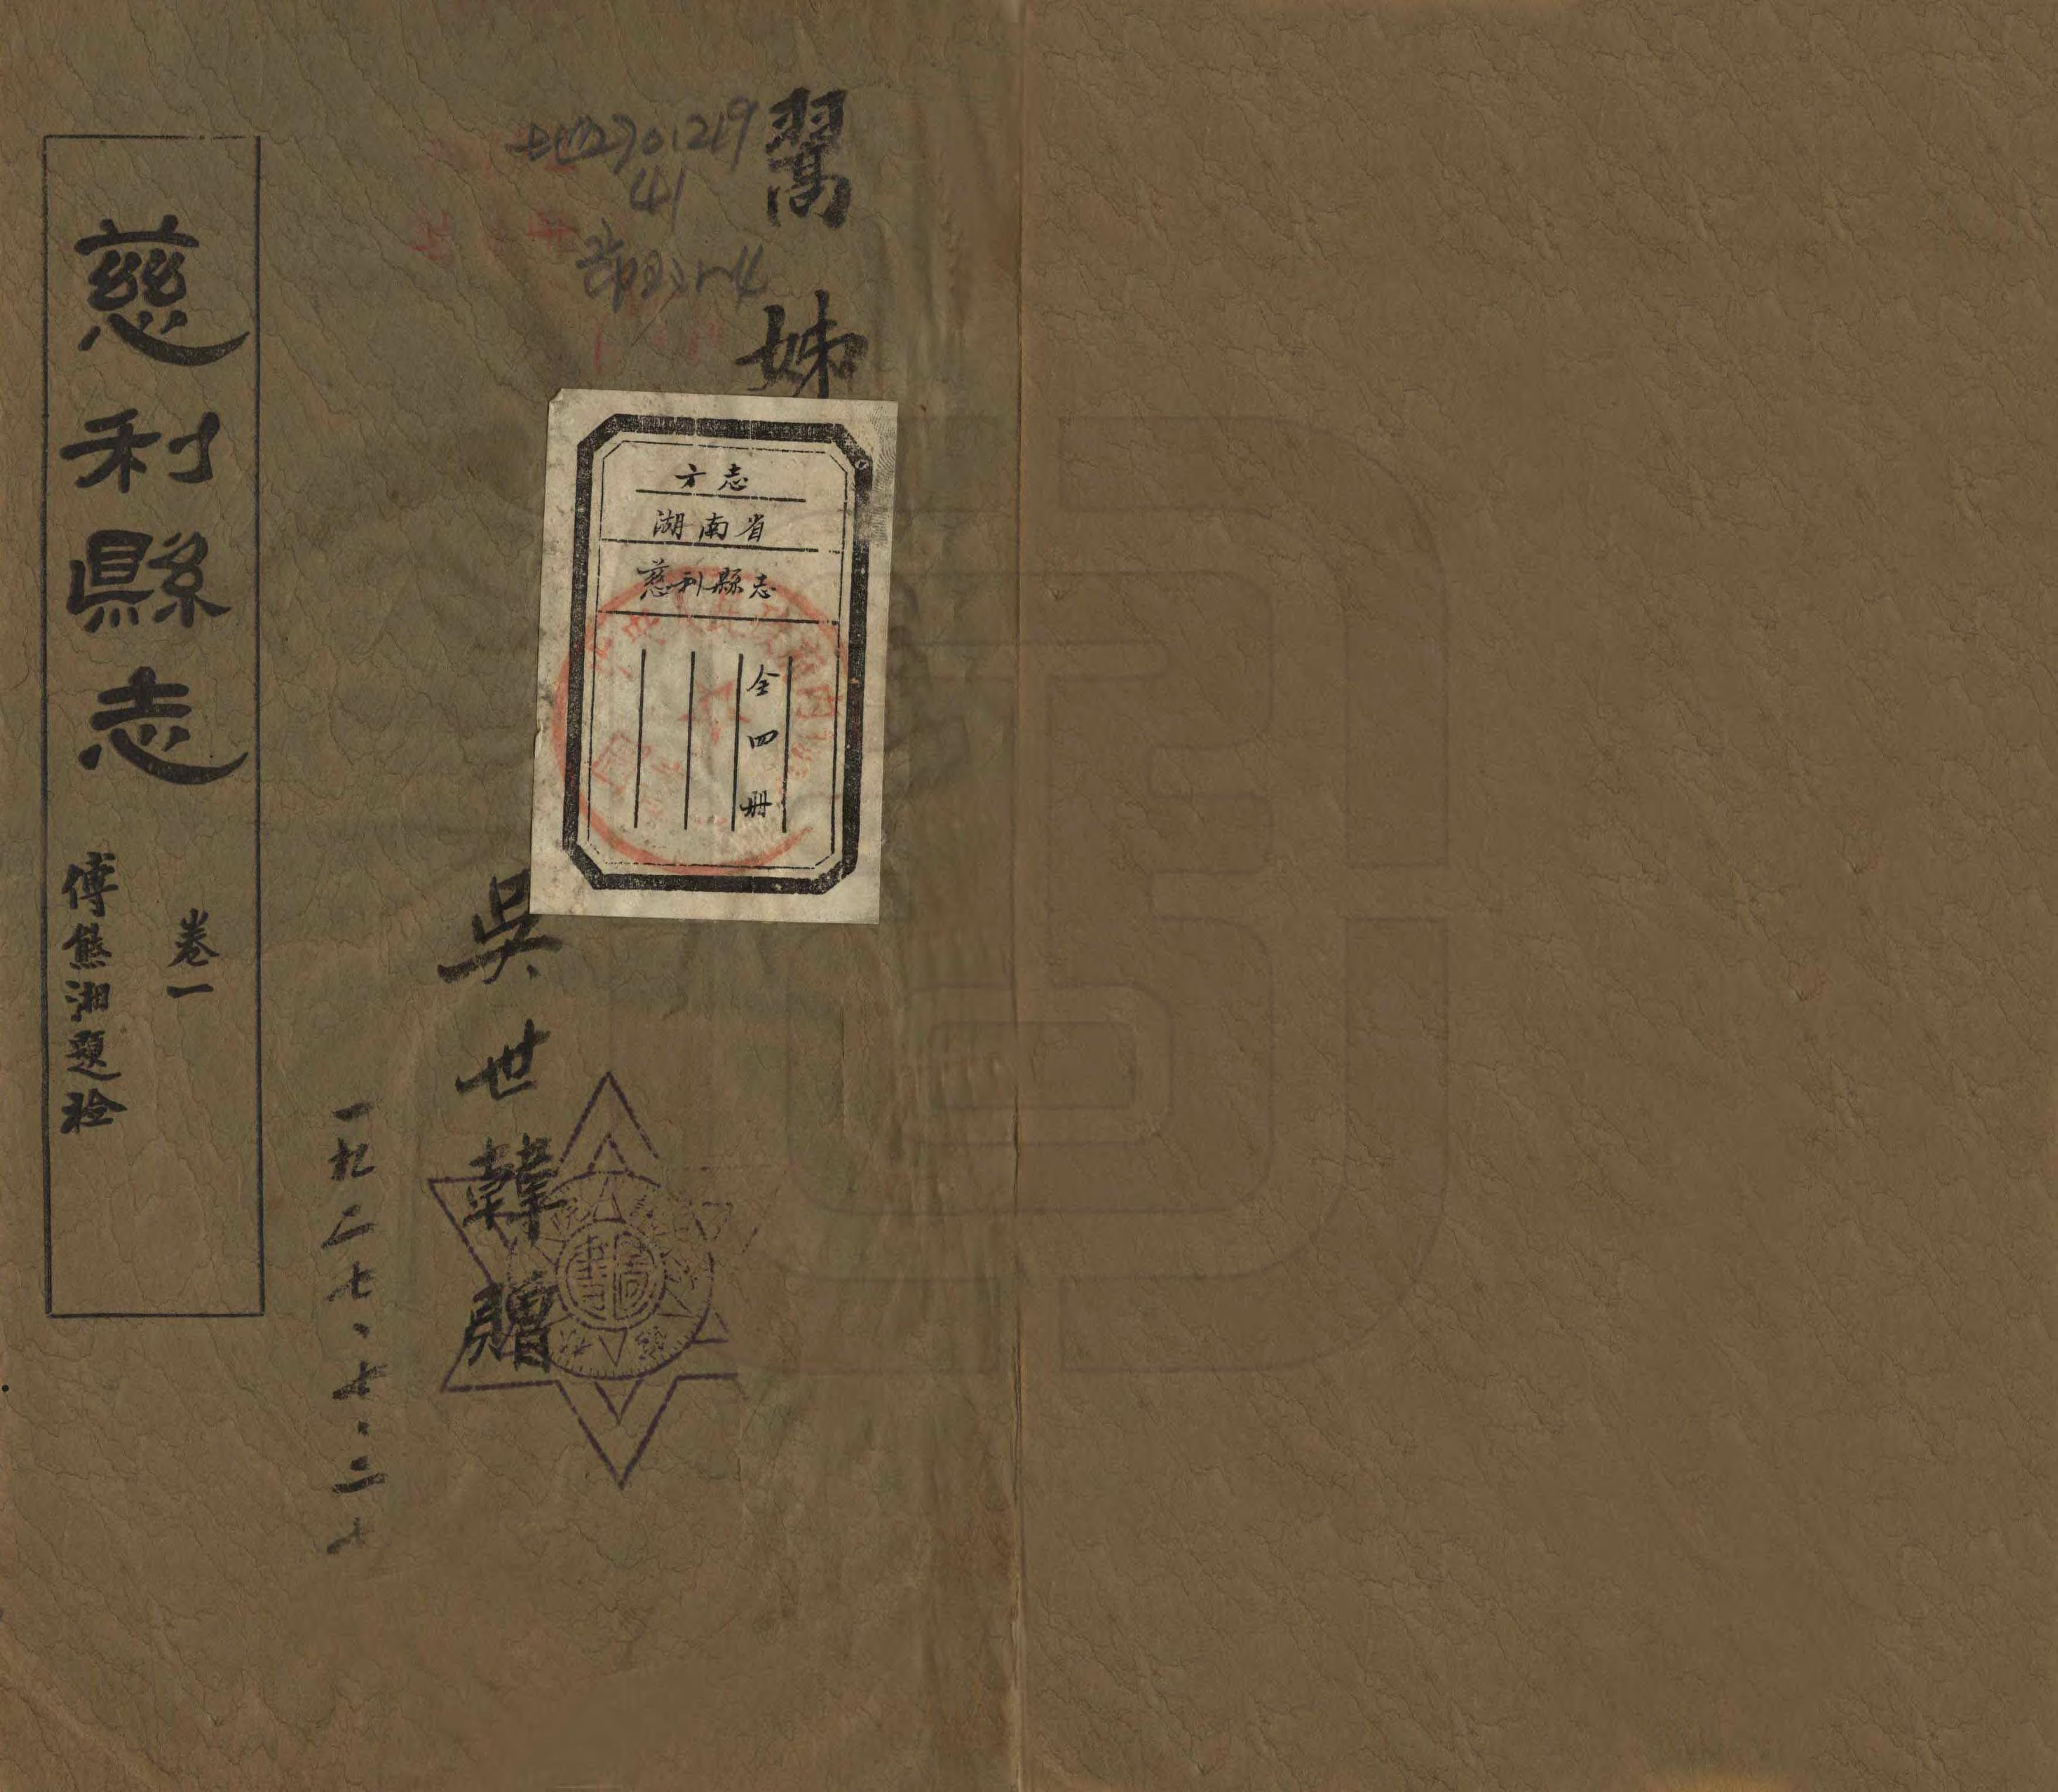 慈利縣志
卷一
傅熊湘題檢
翯姊
吳世韓贈
一九二七、七、二七
方志
湖南省
慈利縣志
全四册
地270.1219
41